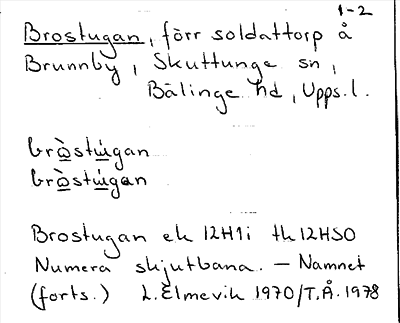 1-2
Brostugan, förr soldattorp å
Brunnby, Skuttunge sn,
Bälinge hd, Upps.l.
brò̲stu̲̇gan
brò̲stu̲̇gan
Brostugan ek 12H1i tk12HSO
Numera skjutbana. – Namnet
(forts.) L.Elmevik 1970/T.Å.1978